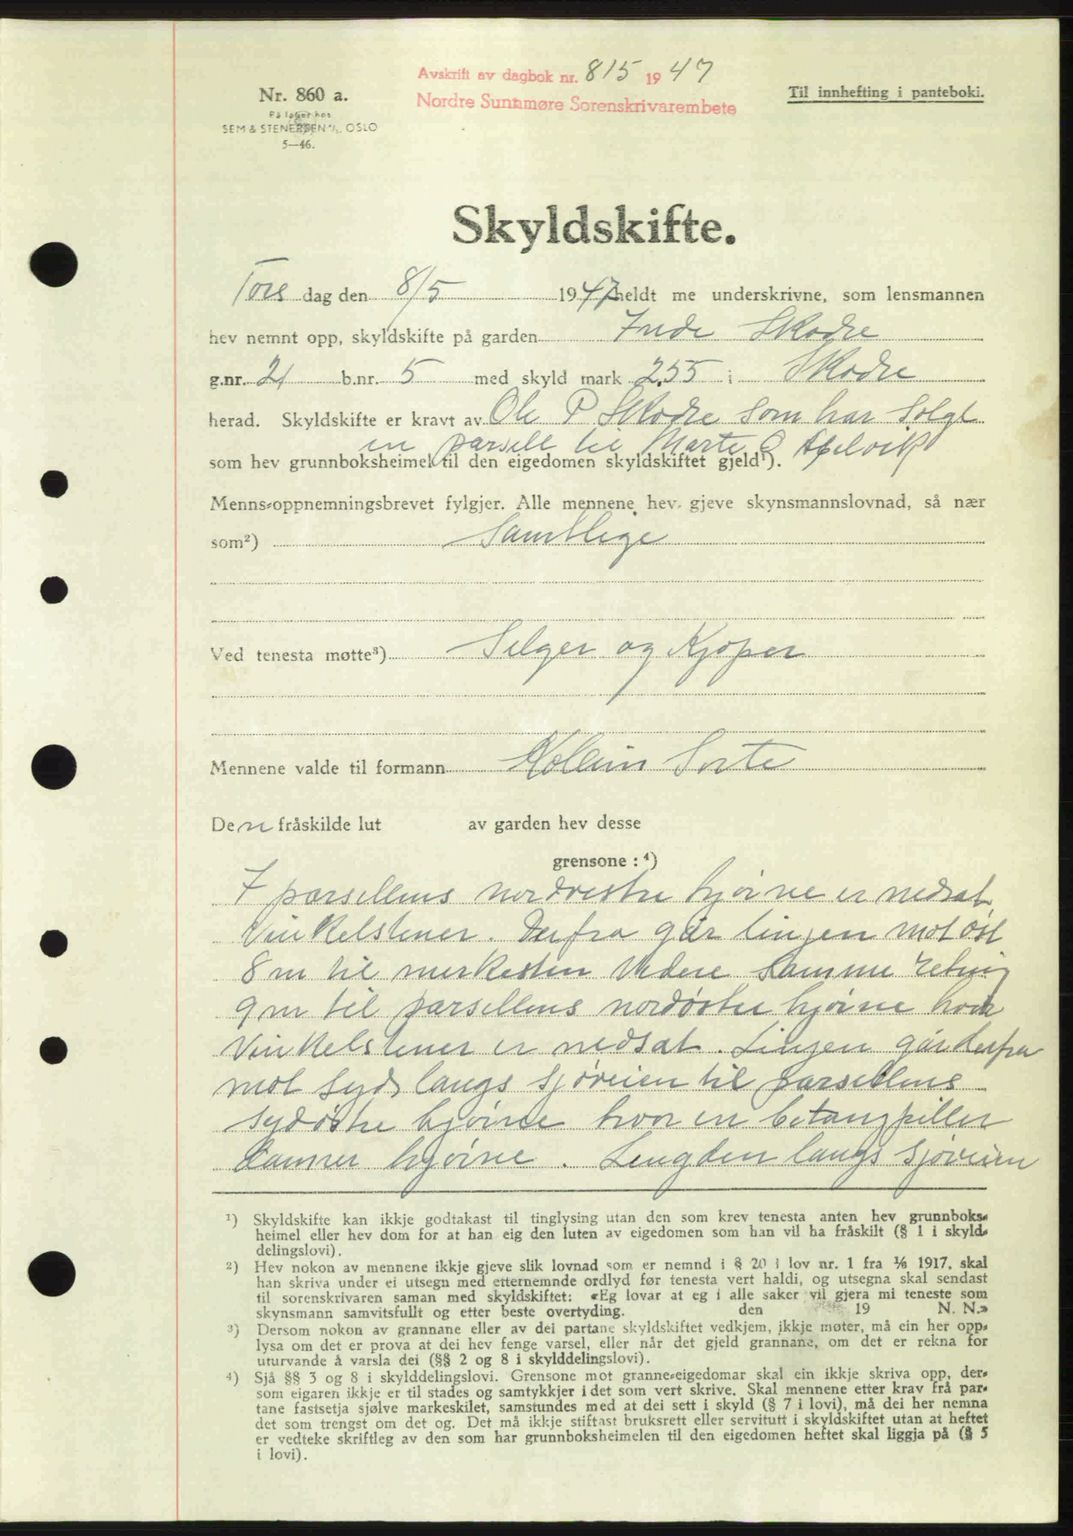 Avskrift av dagbok nr. 815 1947
Nordre Sunnmøre Sorenskrivarembete
Nr. 860 a.
På lager hos
SEM & STENERSEN A/S, OSLO
5—46.
Til innhefting i panteboki.
Skyldskifte.
Tors dag den 8/5 1947 heldt me underskrivne, som lensmannen
hev nemnt opp, skyldskifte på garden Inde Skodre
g.nr. 21 b.nr. 5 med skyld mark 2.55 i Skodre
herad. Skyldskifte er kravt av Ole P Skodre som har solgt
en parsell til Marte O
som hev grunnboksheimel til den eigedomen skyldskiftet gjeld¹).
Menns-oppnemningsbrevet fylgjer. Alle mennene hev gjeve skynsmannslovnad, så nær
som²) Samtlige
Ved tenesta møtte³) Selger og Kjøper
Mennene valde til formann Sorte
Den fråskilde lut av garden hev desse
grensone : ⁴)
I parsellens nordvestre hjørne er nedsat
Vinkelstener. Derfra går linjen mot øst
8 m til merkesten Videre samme retning
9 m til parsellens nordøstre hjørne hvor
Vinkelstener er nedsat. Linjen går derfra
mot syd langs sjøveien til parsellens
sydøstre hjørne hvor en betongpiller
danner hjørne. Lengden langs sjøveien
¹) Skyldskifte kan ikkje godtakast til tinglysing utan den som krev tenesta anten hev grunnboks-
heimel eller hev dom for at han eig den luten av eigedomen som han vil ha fråskilt (§ 1 i skyld-
delingslovi).
²) Hev nokon av mennene ikkje gjeve slik lovnad som er nemnd i § 20 i lov nr. 1 fra ⅙ 1917, skal
han skriva under ei utsegn med etternemnde ordlyd før tenesta vert haldi, og utsegna skal sendast
til sorenskrivaren saman med skyldskiftet: «Eg lovar at eg i alle saker vil gjera mi teneste som
skynsmann samvitsfullt og etter beste overtyding. den 19 N. N.»
³) Dersom nokon av grannane eller av dei partane skyldskiftet vedkjem, ikkje møter, må ein her opp-
lysa om det er prova at dei hev fenge varsel, eller når det gjeld grannane, om det er rekna for
uturvande å varsla dei (§§ 2 og 8 i skylddelingslovi).
⁴) Sjå §§ 3 og 8 i skylddelingslovi. Grensone mot granne-eigedomar skal ein ikkje skriva opp, der-
som eigaren ikkje er til stades og samtykkjer i det som vert skrive. Skal mennene etter krav frå par-
tane fastsetja sjølve markeskilet, samstundes med at dei sett i skyld (§ 7 i lovi), må dei her nemna
det som trengst om det og. Det må ikkje stiftast bruksrett eller servitutt i skyldskiftet utan at heftet
er vedteke skriftleg av den som har grunnboksheimelen til den eigedomen heftet skal liggja på (§ 5
i lovi).